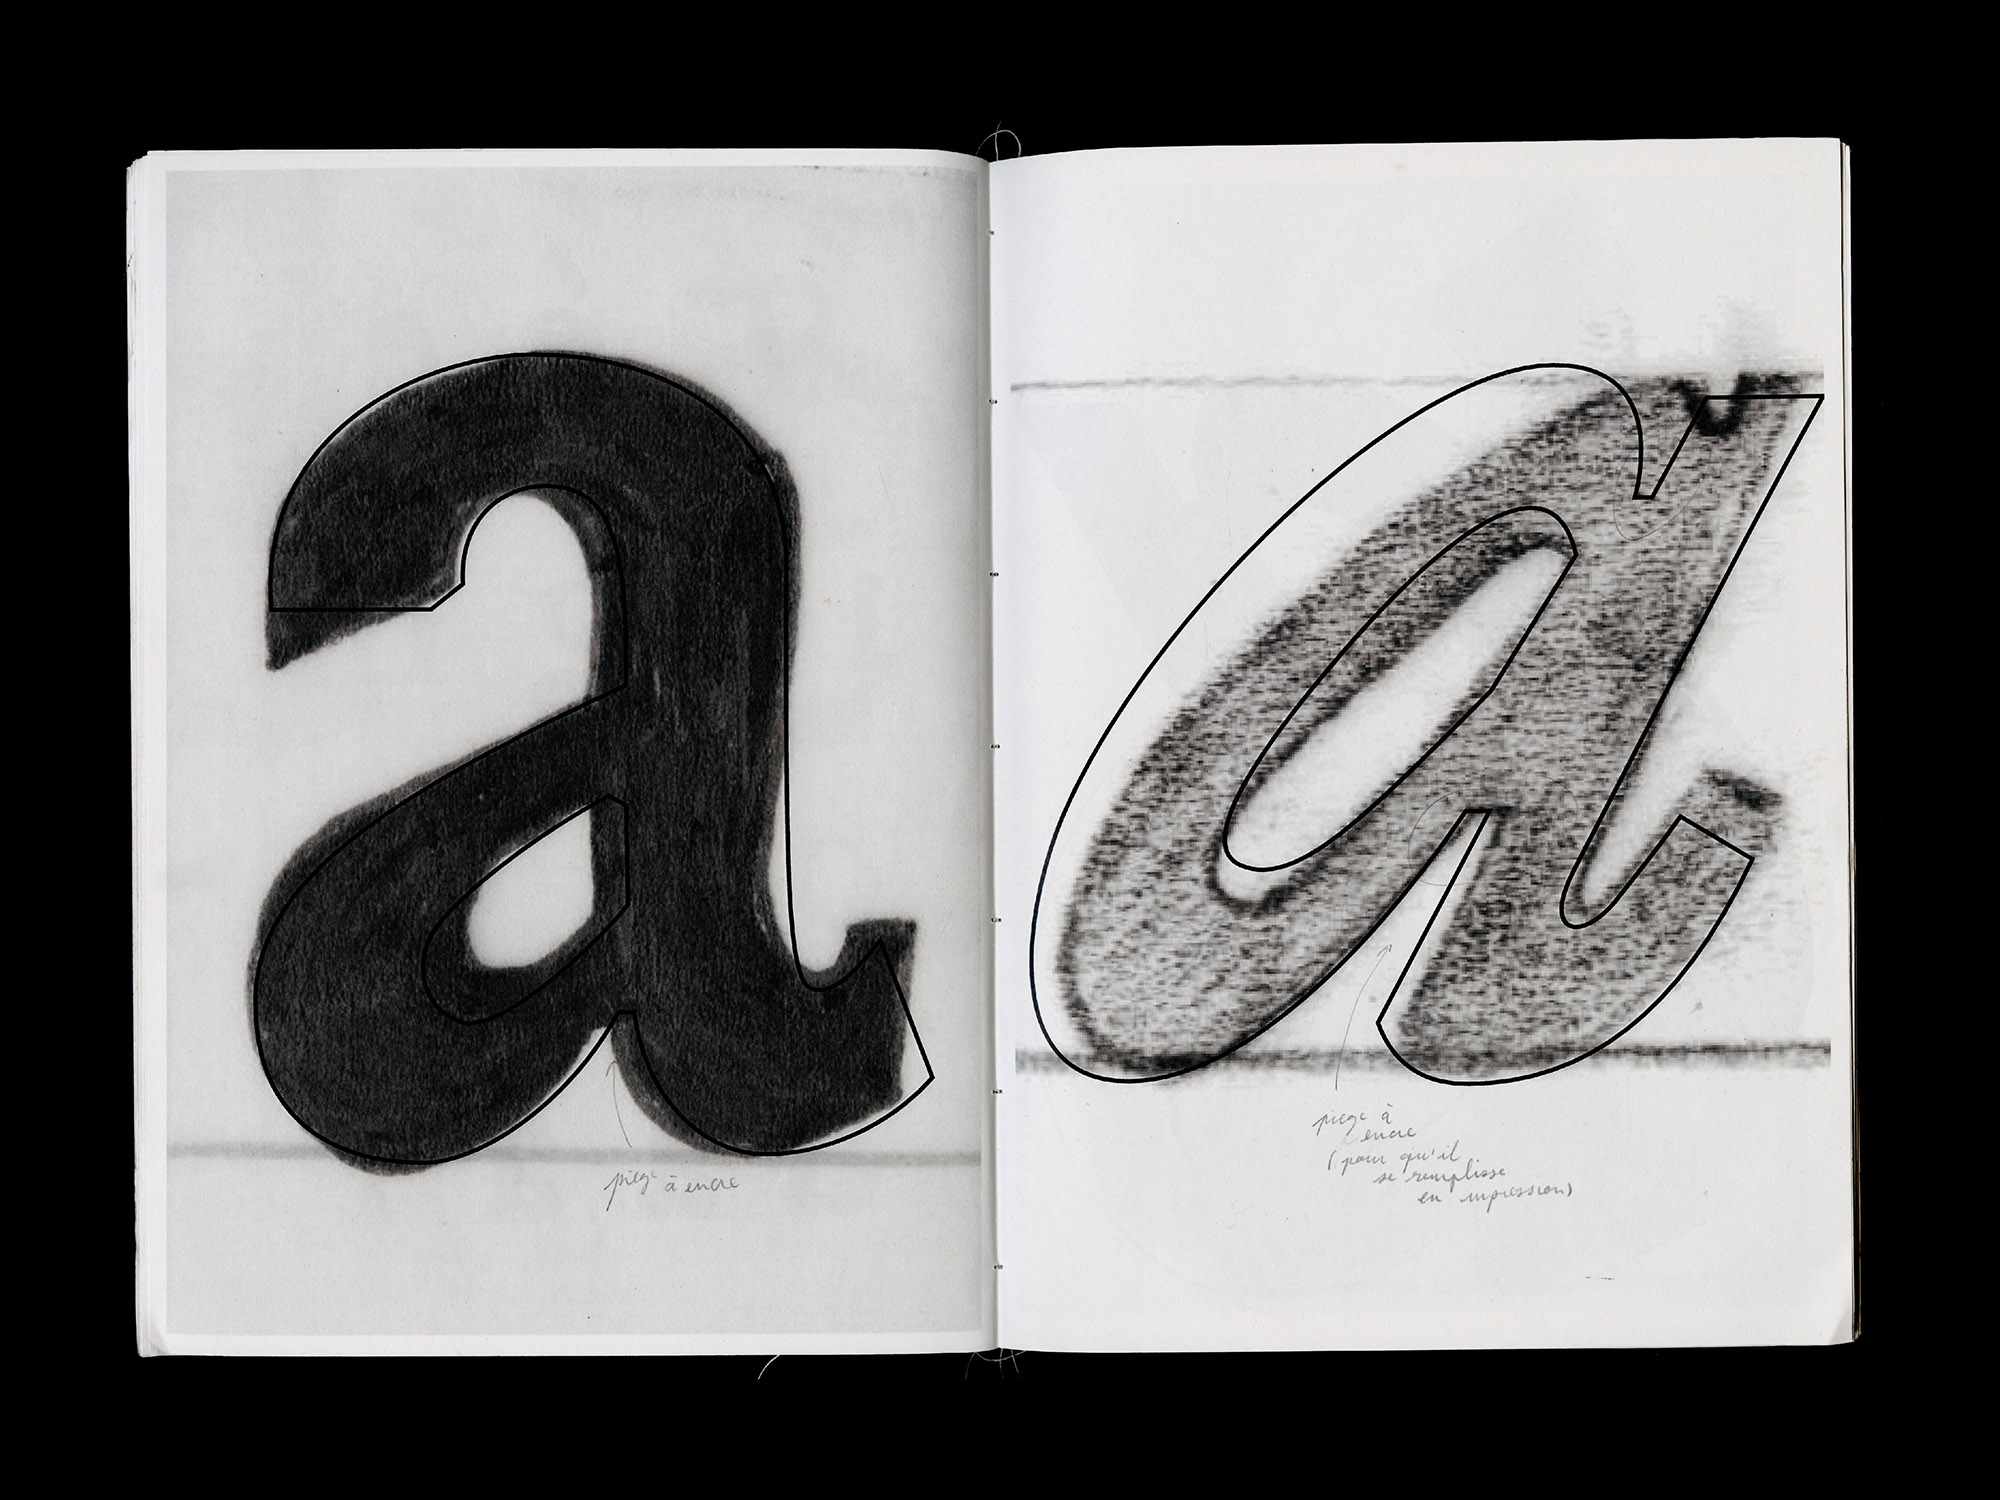 a
piege à encre
a
piege à
encre
(pour qu'il
se remplisse
en impression)